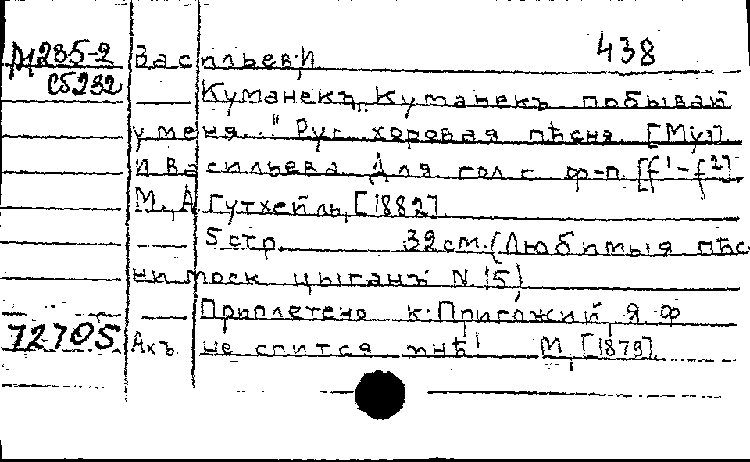 М235-2 Васильев, И 438
сб232 Куманекъ, Куманекъ побывай
у меня..." Рус. хоровая пѣсня. [Муз.]
И Васильева Для гол с ф-п. [f¹-f²]
М., А Гутхейль, [1882]
5 стр. 32 см. (Любимыя пѣс
ни моск цыганъ N 15)
Приплетено к: Пригожий, Я Ф
72705 Ахъ не спится мнѣ! М, [1879]